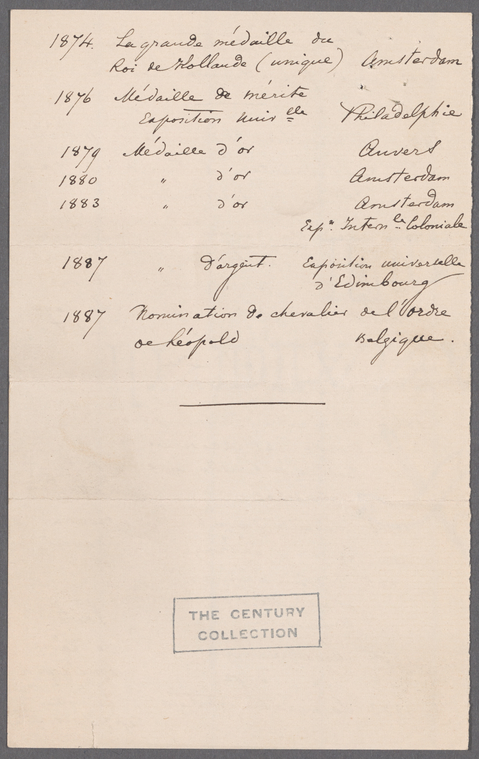 1874. La grande médaille du
Roi de Hollande (unique) Amsterdam
1876 Médaille de mérite
Exposition Univ elle Philadelphie
1879 Médaille d'or Anvers
1880 " d'or Amsterdam
1883 " d'or Amsterdam
Exp.n Intern le Coloniale
1887 " D'argent. Exposition universelle
d'Edimbourg
1887 Nomination de chevalier de l'ordre
de Léopold Belgique.
THE CENTURY
COLLECTION